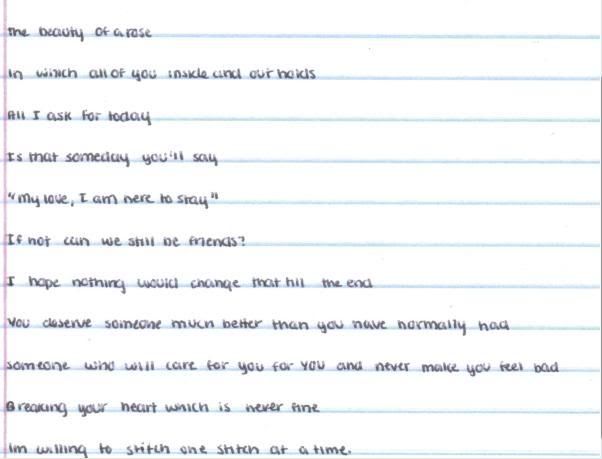 The beauty of a rose
In which all of you inside and out holds
All I ask for today
Is that someday you'll say
"My love, I am here to stay"
If not can we still be friends?
I hope nothing would change that till the end
You deserve someone much better than you have normally had
someone who will care for you for YOU and never make you feel bad
Breaking your heart which is never fine
Im willing to stitch one stitch at a time.